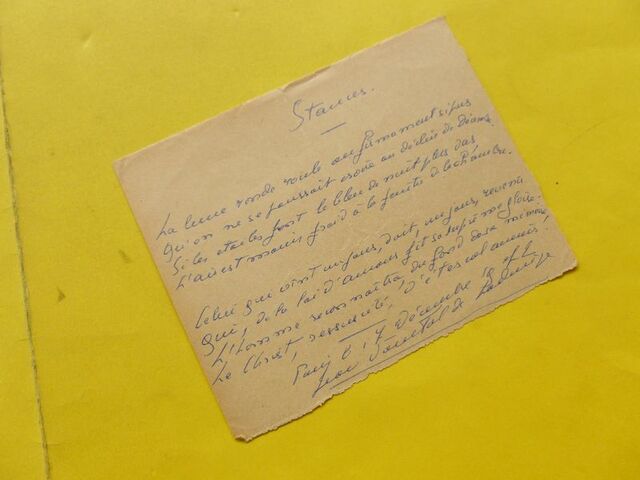 Stances.
La lune ronde roule au firmament si pur
Qu'on ne se pourrait croire au déclin de Décembre
Si les étoiles font le bleu de nuit plus
L'air est moins froid à la fenêtre de la chambre.
Celui qui vint un jour, doit, un jour, revenir
Qui, de la loi d'amour fit sa suprême gloire.
L'homme reconnaîtra du fond de sa mémoire
Le Christ, ressuscité,
Paris le 17 Décembre
Jean